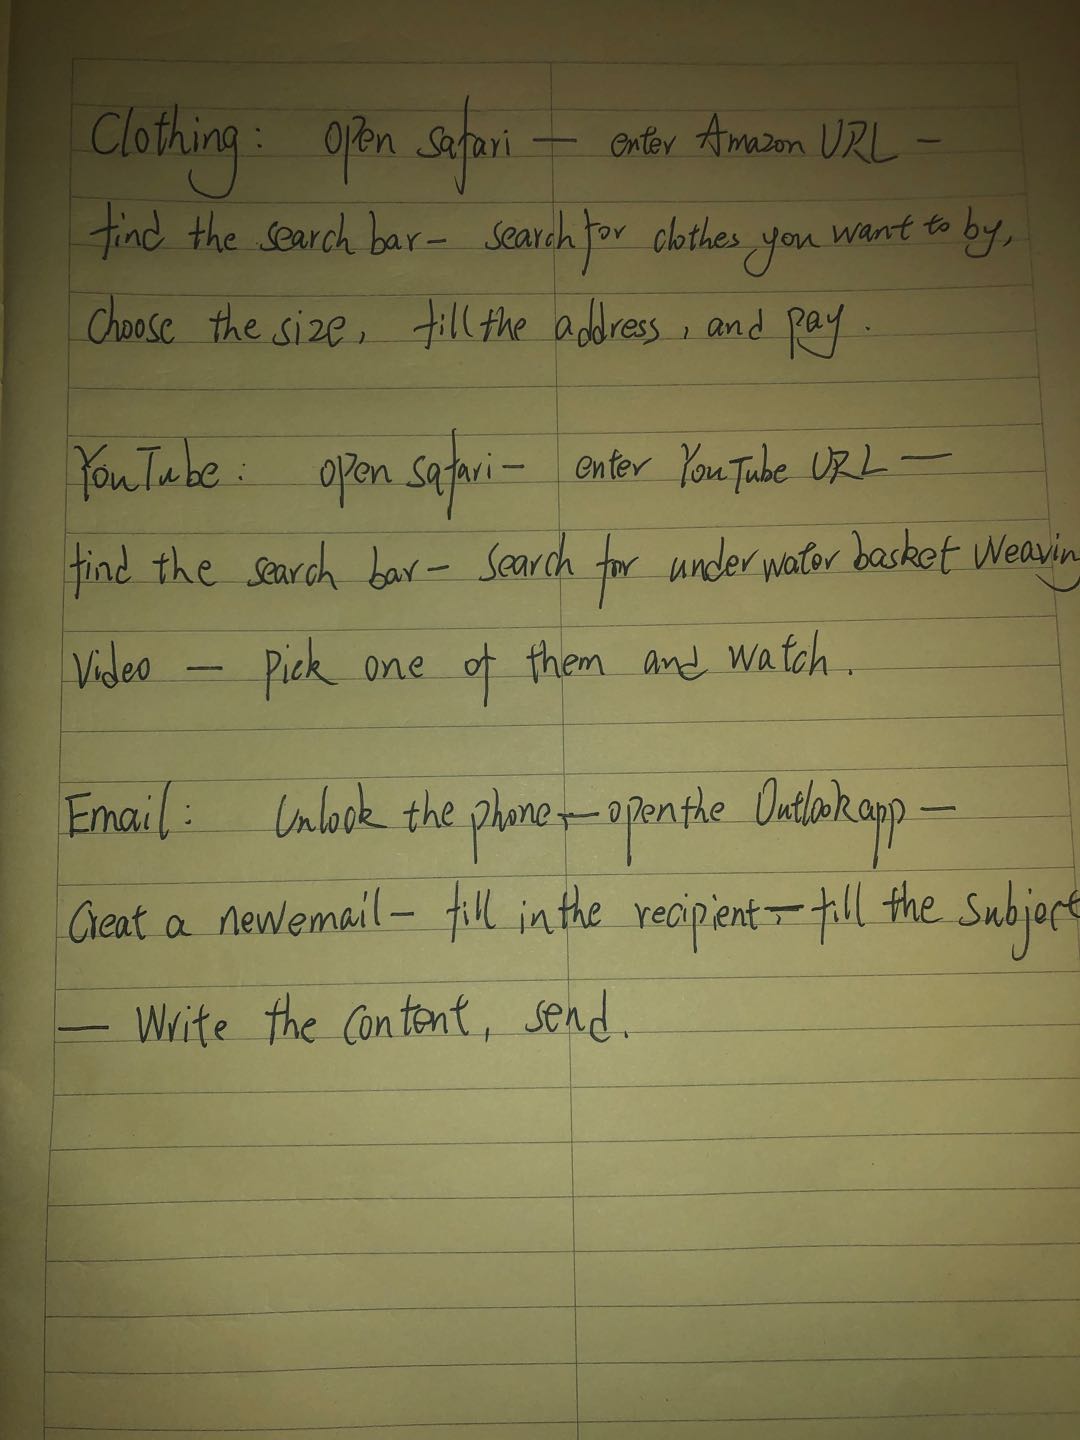 Clothing: open safari — enter Amazon URL —
find the search bar — search for clothes you want to by,
choose the size, fill the address, and pay.
YouTube: open safari — enter YouTube URL —
find the search bar — search for underwater basket weaving
Video — pick one of them and watch.
Email: Unlock the phone — open the Outlook app —
Creat a new email — fill in the recipient — fill the subject
— Write the content, send.